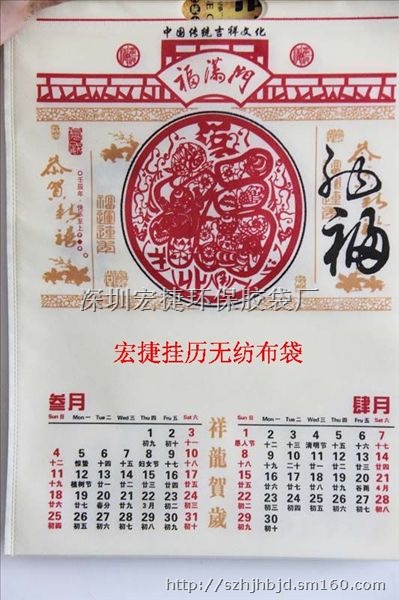 中国传统吉祥文化
福满門
恭贺新禧
福
深圳宏捷环保胶袋厂
宏捷挂历无纺布袋
叁月
Sun 日 Mon 一 Tue 二 Wed 三 Thu 四 Fri 五 Sat 六
1 2 3
初九 初十 十一
4 5 6 7 8 9 10
十二 惊蛰 十四 十五 妇女节 十七 十八
11 12 13 14 15 16 17
十九 植树节 廿一 廿二 廿三 廿四 廿五
18 19 20 21 22 23 24
廿六 廿七 春分 廿九 初二 初三
25 26 27 28 29 30 31
初四 初五 初六 初七 初八 初九 初十
祥龍賀歲
肆月
Sun 日 Mon 一 Tue 二 Wed 三 Thu 四 Fri 五 Sat 六
1 2 3 4 5 6 7
愚人节 十二 十三 清明节 十五 十六 十七
8 9 10 11 12 13 14
十八 十九 二十 廿一 廿二 廿三 廿四
15 16 17 18 19 20 21
廿五 廿六 廿七 廿八 廿九 谷雨 4月
22 23 24 25 26 27 28
初二 初三 初四 初五 初六 初七 初八
29 30
初九 初十
http://szhjhbjd.sm160.com/